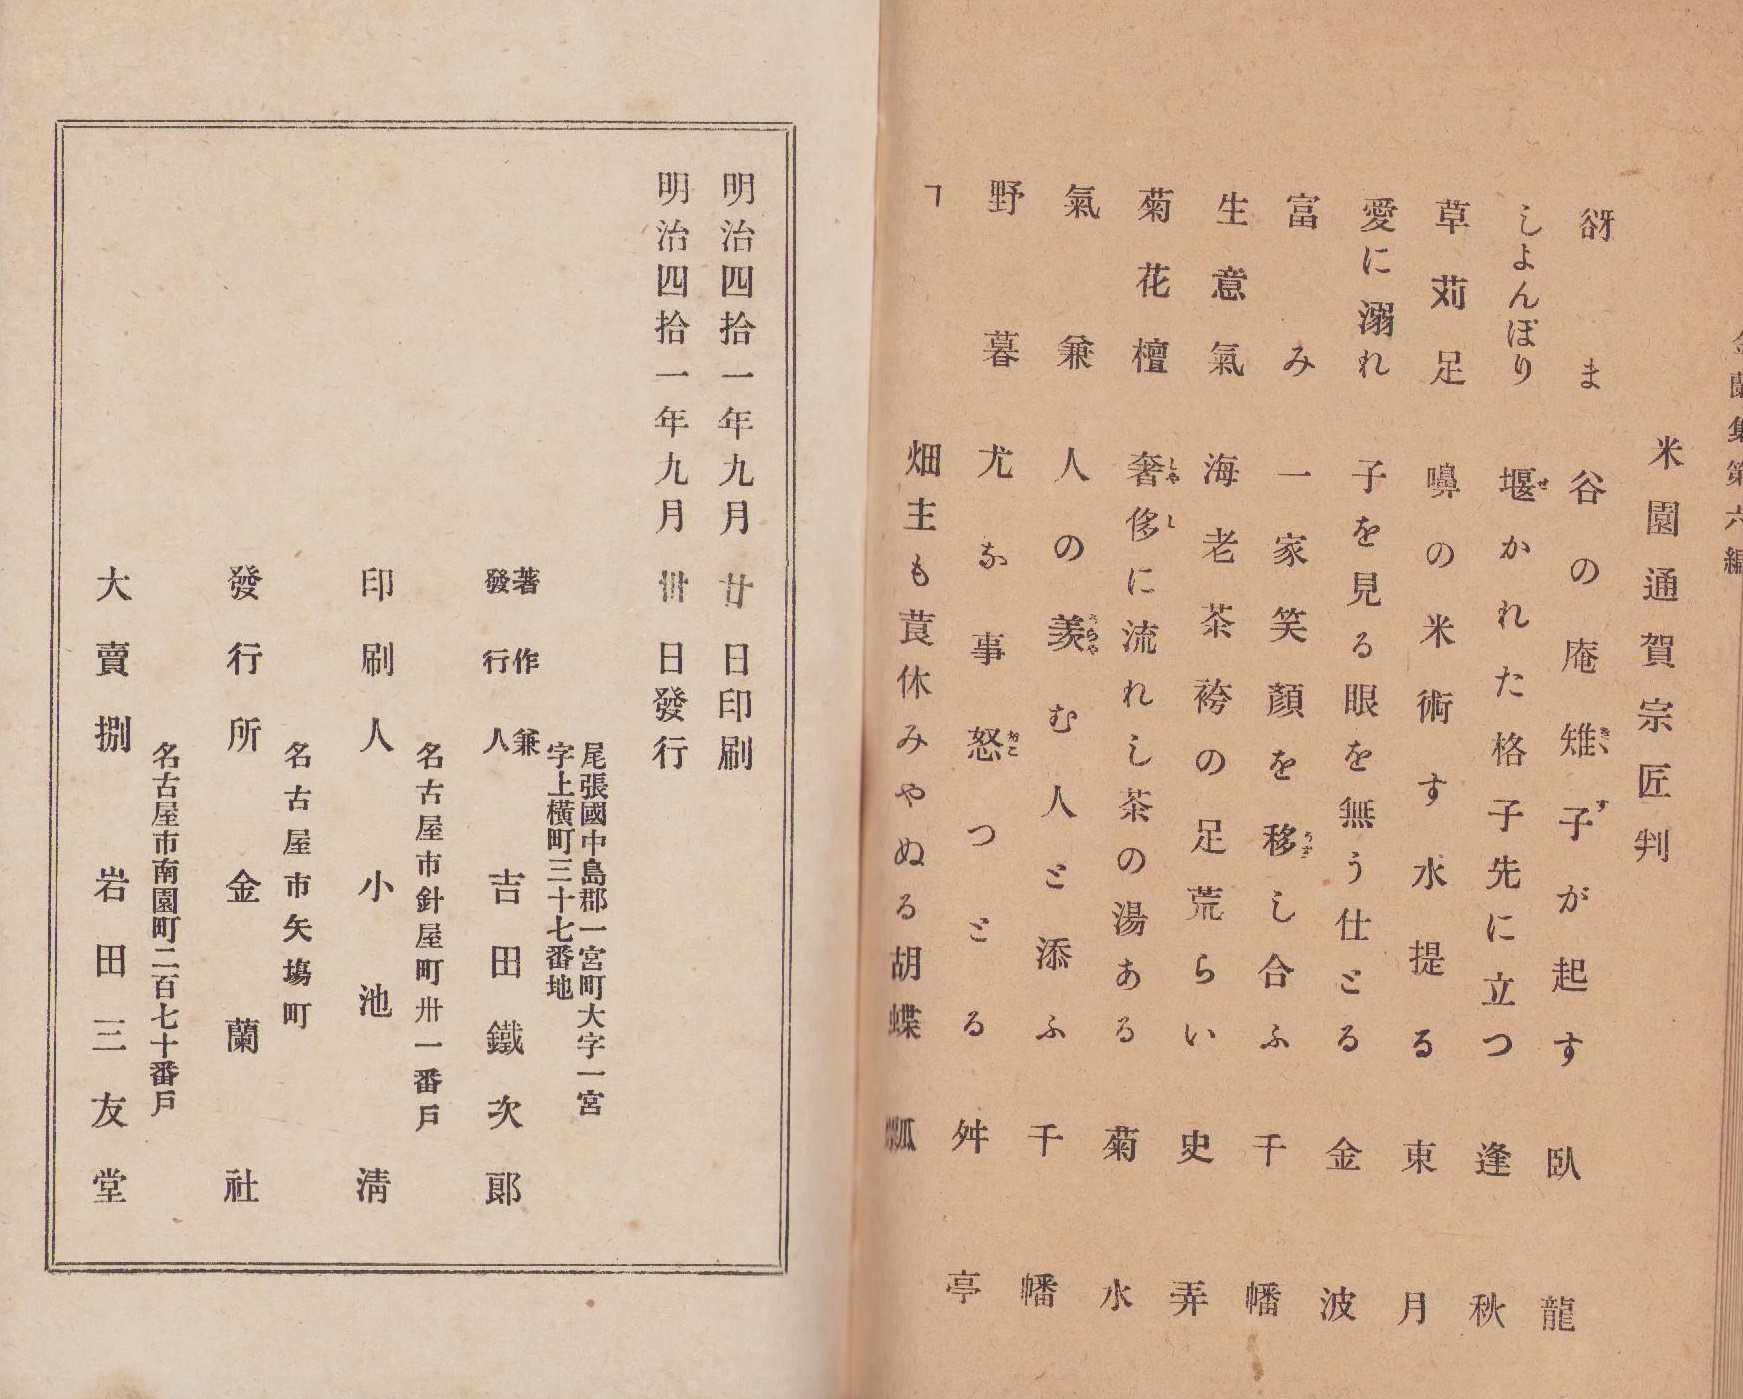 金蘭集第六編
米園通賀宗匠判
谺ま 谷の庵雉子が起す 臥龍
しよんぼり 堰かれた格子先に立つ 逢秋
草苅足 嚊の米術す水提る 東月
愛に溺れ 子を見る眼を無う仕とる 金波
富み 一家笑顔を移し合ふ 千幡
生意氣 海老茶袴の足荒らい 史弄
菊花檀 奢侈に流れし茶の湯ある 菊水
氣兼 人の羨む人と添ふ 千幡
野暮 尤な事怒つとる 舛亭
〃 畑主も莨休みやぬる胡蝶 瓢
明治四拾一年九月廿日印刷
明治四拾一年九月卅日發行
尾張國中島郡一宮町大字一宮
字上横町三十七番地
著作兼
發行人 吉田鐵次郎
名古屋市針屋町卅一番戸
印刷人 小池清
名古屋市矢塲町
發行所 金蘭社
名古屋市南園町二百七十番戸
大賣捌 岩田三友堂